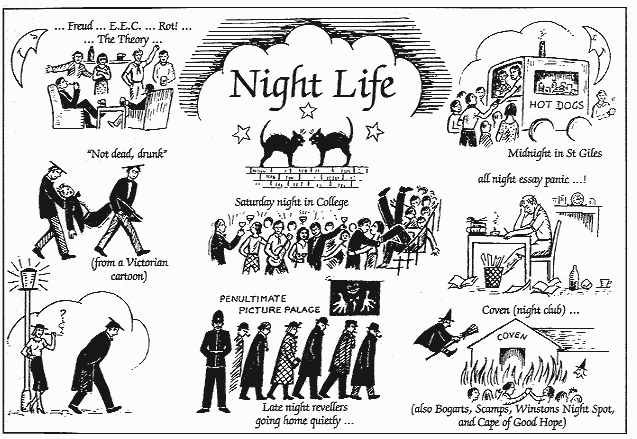 ... Freud ... E.E.C. ... Rot! ...
... The Theory ...
Night Life
HOT DOGS
Midnight in St Giles
"Not dead, drunk"
(from a Victorian
cartoon)
Saturday night in College
all night essay panic ...!
?
PENULTIMATE
PICTURE PALACE
Late night revellers
going home quietly ...
Coven (night club) ...
COVEN
(also Bogarts, Scamps, Winstons Night Spot,
and Cape of Good Hope)